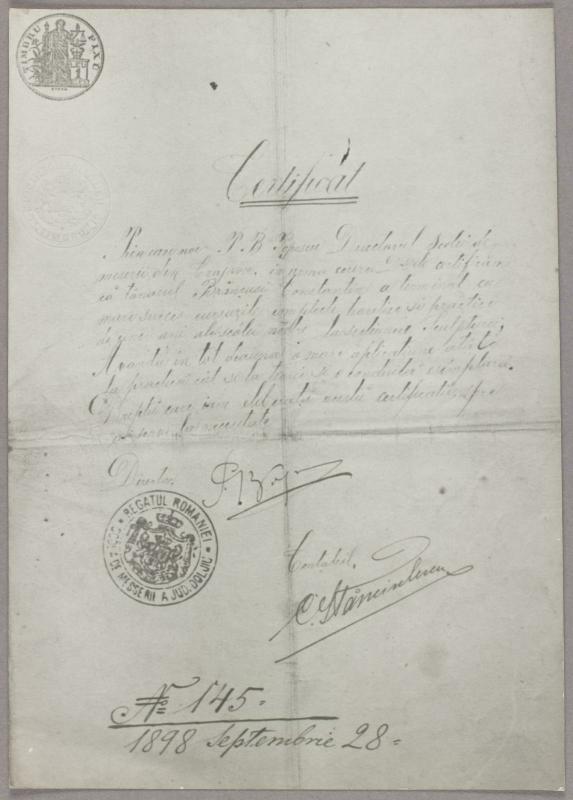 TIMBRU FIX
Certificát
P. B. Popescu Directorul Școlei de
meserii din Craiova, în urma cererei certificăm
că tânărul Brâncuși Constantin a terminat cu
mare succes cursurile complecte teoretice și practice
de ani ai școlei secțiunea Sculpturei,
Avândŭ în tot o mare aplicațiune atât
la practică cât și la teorie și o conduită exemplară.
Dreptŭ care iam eliberatŭ acestŭ certificatŭ spre
a-i servi la necesitate
Director,
REGATUL ROMANIEI
DE MESSERII A JUD. DOLJIU
Contabil,
C. Stănciulescu
No 145.
1898 Septembrie 28=